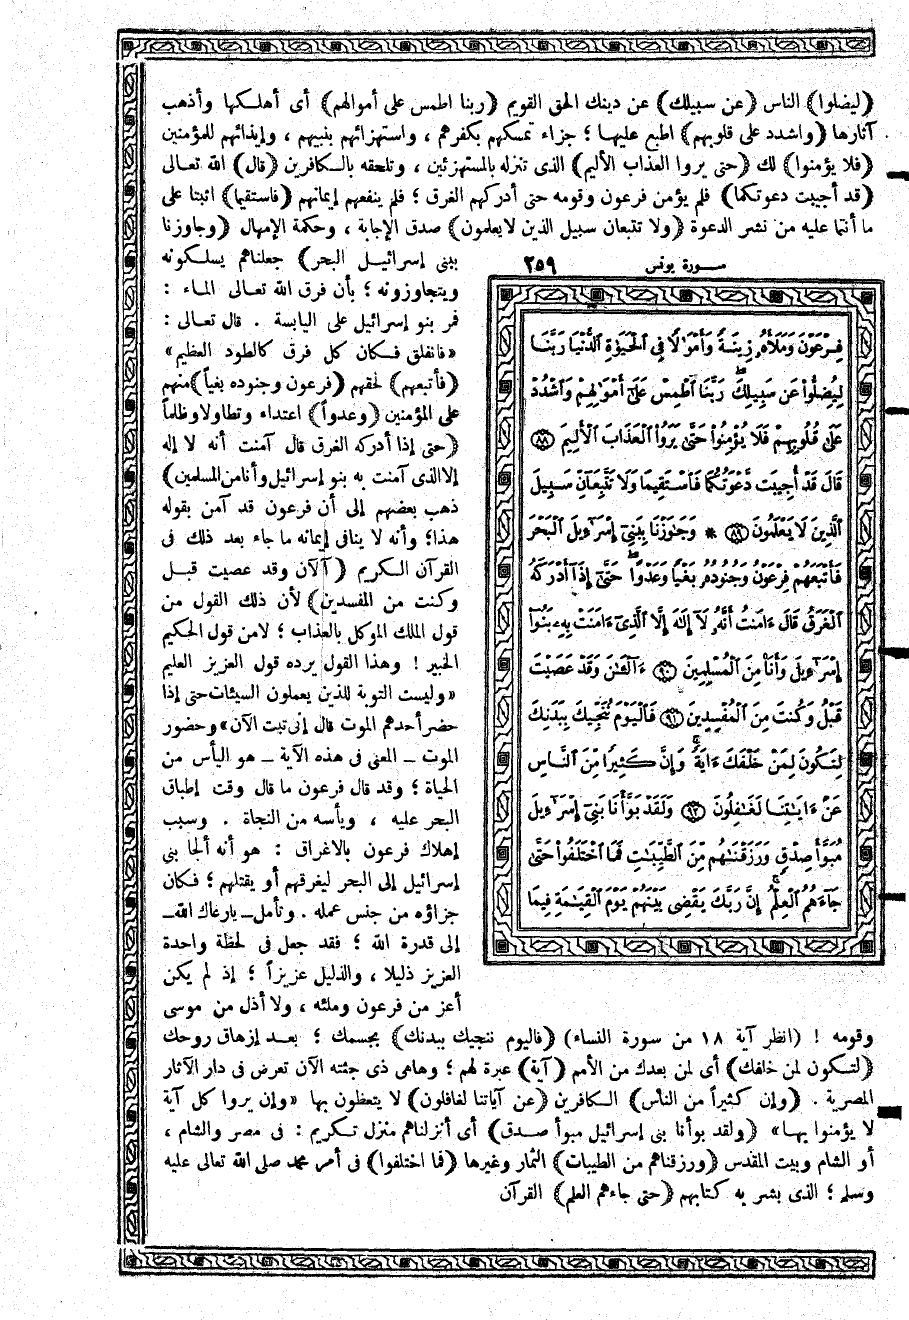 (ليضلوا) الناس (عن سبيلك) عن دينك الحق القويم (ربنا اطمس على أموالهم) أى أهلكها وأذهب
آثارها (واشدد على قلوبهم) اطبع عليها ؛ جزاء تمسكهم بكفرهم ، واستهزائهم بنبيهم ، وإيذائهم للمؤمنين
(فلا يؤمنوا) لك (حتى يروا العذاب الأليم) الذى تنزله بالمستهزئين ، وتلحقه بالكافرين (قال) الله تعالى
(قد أجيبت دعوتكما) فلم يؤمن فرعون وقومه حتى أدركهم الغرق ؛ فلم ينفعهم إيمانهم (فاستقيما) اثبتا على
ما أنتما عليه من نشر الدعوة (ولا تتبعان سبيل الذين لايعلمون) صدق الإجابة ، وحكمة الإمهال (وجاوزنا
ببنى إسرائيل البحر) جعلناهم يسلكونه
ويتجاوزونه ؛ بأن فرق الله تعالى الماء :
فمر بنو إسرائيل على اليابسة . قال تعالى :
«فانفلق فكان كل فرق كالطود العظيم»
(فأتبعهم) لحقهم (فرعون وجنوده بغياً) منهم
على المؤمنين (وعدواً) اعتداء وتطاولا وظلماً
(حتى إذا أدركه الغرق قال آمنت أنه لا إله
إلا الذى آمنت به بنو إسرائيل وأنا من المسلمين)
ذهب بعضهم إلى أن فرعون قد آمن بقوله
هذا؛ وأنه لا ينافى إيمانه ما جاء بعد ذلك فى
القرآن الكريم (آلآن وقد عصيت قبل
وكنت من المفسدين) لأن ذلك القول من
قول الملك الموكل بالعذاب ؛ لامن قول الحكيم
الخبير ! وهذا القول يرده قول العزيز العليم
«وليست التوبة للذين يعملون السيئات حتى إذا
حضر أحدهم الموت قال إنى تبت الآن» وحضور
الموت ــ المعنى فى هذه الآية ــ هو اليأس من
الحياة ؛ وقد قال فرعون ما قال وقت إطباق
البحر عليه ، ويأسه من النجاة . وسبب
إهلاك فرعون بالاغراق : هو أنه ألجأ بنى
إسرائيل إلى البحر ليغرقهم أو يقتلهم ؛ فكان
جزاؤه من جنس عمله . وتأمل ــ يارعاك الله ــ
إلى قدرة الله ؛ فقد جعل فى لحظة واحدة
العزيز ذليلا ، والذليل عزيزاً ؛ إذ لم يكن
أعز من فرعون وملئه ، ولا أذل من موسى
سورة يونس ٢٥٩
فِرْعَوْنَ وَمَلَأَهُۥ زِينَةً وَأَمْوَٰلًا فِى ٱلْحَيَوٰةِ ٱلدُّنْيَا رَبَّنَا
لِيُضِلُّوا۟ عَن سَبِيلِكَ ۖ رَبَّنَا ٱطْمِسْ عَلَىٰٓ أَمْوَٰلِهِمْ وَٱشْدُدْ
عَلَىٰ قُلُوبِهِمْ فَلَا يُؤْمِنُوا۟ حَتَّىٰ يَرَوُا۟ ٱلْعَذَابَ ٱلْأَلِيمَ ٨٨
قَالَ قَدْ أُجِيبَت دَّعْوَتُكُمَا فَٱسْتَقِيمَا وَلَا تَتَّبِعَآنِّ سَبِيلَ
ٱلَّذِينَ لَا يَعْلَمُونَ ٨٩ * وَجَٰوَزْنَا بِبَنِىٓ إِسْرَٰٓءِيلَ ٱلْبَحْرَ
فَأَتْبَعَهُمْ فِرْعَوْنُ وَجُنُودُهُۥ بَغْيًا وَعَدْوًا ۖ حَتَّىٰٓ إِذَآ أَدْرَكَهُ
ٱلْغَرَقُ قَالَ ءَامَنتُ أَنَّهُۥ لَآ إِلَٰهَ إِلَّا ٱلَّذِىٓ ءَامَنَتْ بِهِۦ بَنُوٓا۟
إِسْرَٰٓءِيلَ وَأَنَا۠ مِنَ ٱلْمُسْلِمِينَ ٩٠ ءَآلْـَٰٔنَ وَقَدْ عَصَيْتَ
قَبْلُ وَكُنتَ مِنَ ٱلْمُفْسِدِينَ ٩١ فَٱلْيَوْمَ نُنَجِّيكَ بِبَدَنِكَ
لِتَكُونَ لِمَنْ خَلْفَكَ ءَايَةً ۚ وَإِنَّ كَثِيرًا مِّنَ ٱلنَّاسِ
عَنْ ءَايَٰتِنَا لَغَٰفِلُونَ ٩٢ وَلَقَدْ بَوَّأْنَا بَنِىٓ إِسْرَٰٓءِيلَ
مُبَوَّأَ صِدْقٍ وَرَزَقْنَٰهُم مِّنَ ٱلطَّيِّبَٰتِ فَمَا ٱخْتَلَفُوا۟ حَتَّىٰ
جَآءَهُمُ ٱلْعِلْمُ ۚ إِنَّ رَبَّكَ يَقْضِى بَيْنَهُمْ يَوْمَ ٱلْقِيَٰمَةِ فِيمَا
وقومه ! (انظر آية ١٨ من سورة النساء) (فاليوم ننجيك ببدنك) بجسمك ؛ بعد إزهاق روحك
(لتكون لمن خلفك) أى لمن بعدك من الأمم (آية) عبرة لهم ؛ وهاهى ذى جثته الآن تعرض فى دار الآثار
المصرية . (وإن كثيراً من الناس) الكافرين (عن آياتنا لغافلون) لا يتعظون بها «وإن يروا كل آية
لا يؤمنوا بها» (ولقد بوأنا بنى إسرائيل مبوأ صدق) أى أنزلناهم منزل تكريم : فى مصر والشام ،
أو الشام وبيت المقدس (ورزقناهم من الطيبات) الثمار وغيرها (فما اختلفوا) فى أمر محمد صلى الله تعالى عليه
وسلم ؛ الذى بشر به كتابهم (حتى جاءهم العلم) القرآن